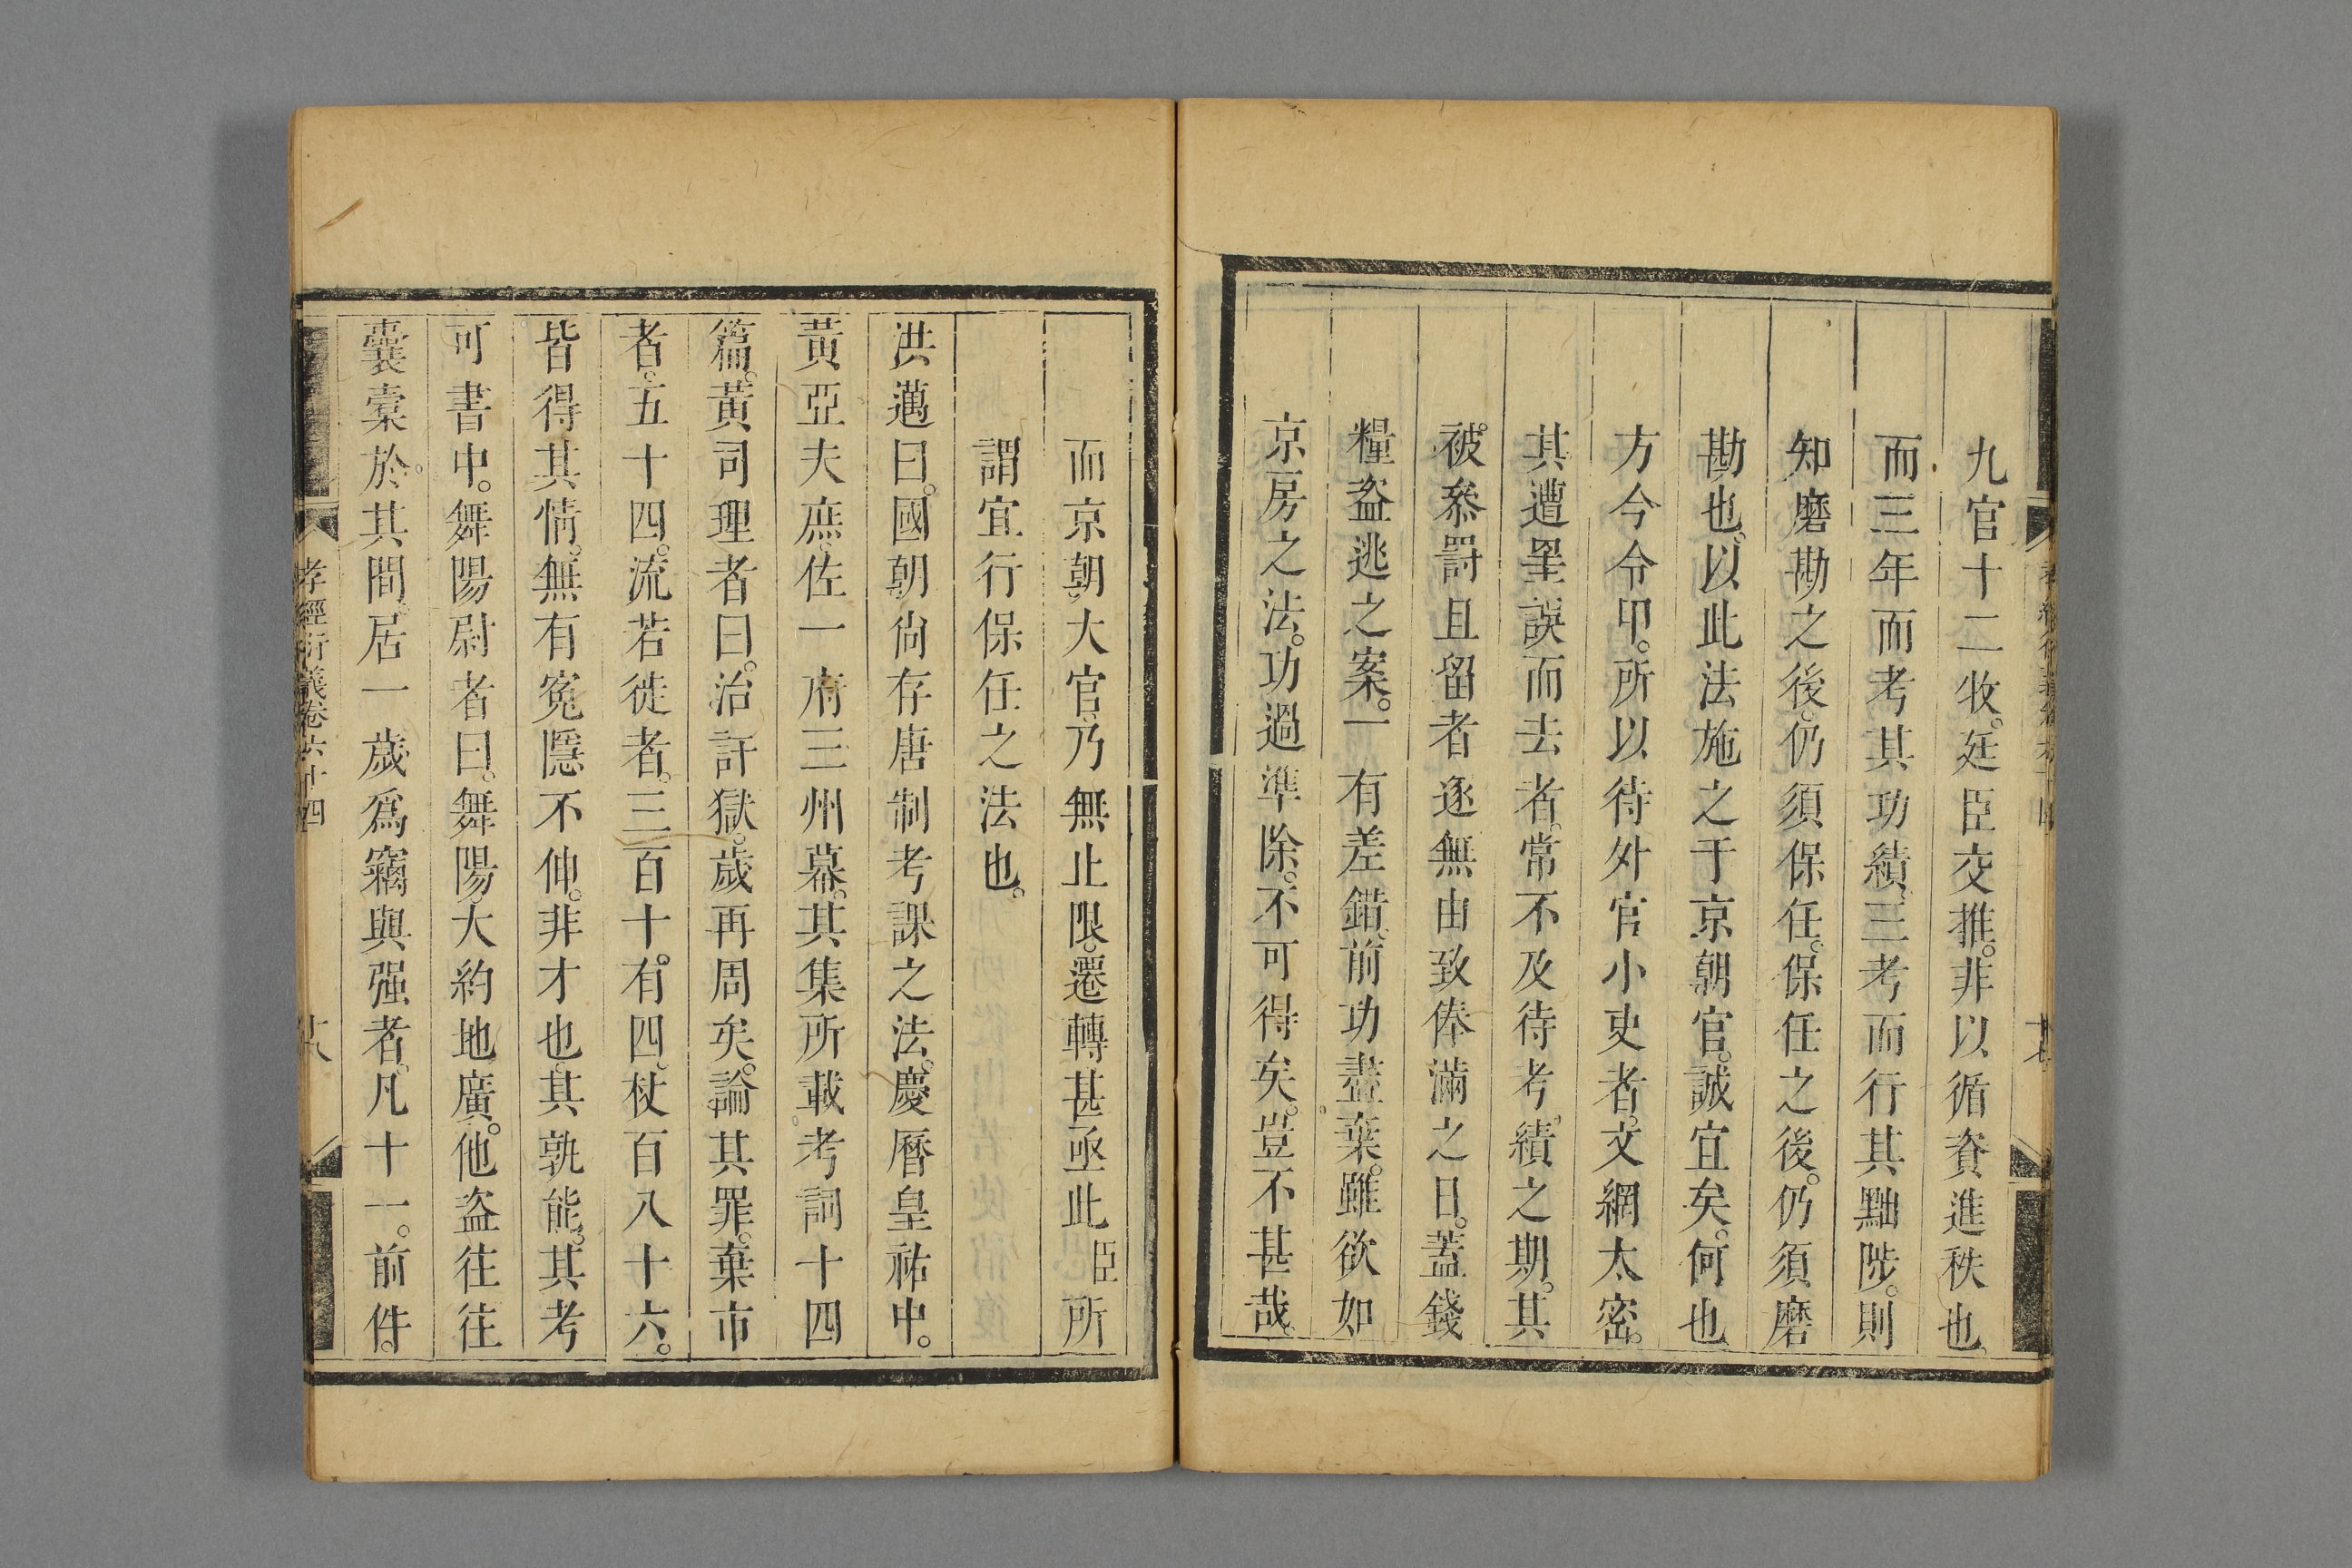 九官十二牧。廷臣交推。非以循資進秩也
而三年而考其功績。三考而行其黜陟。則
知磨勘之後。仍須保任。保任之後。仍須磨
勘也。以此法施之于京朝官。誠宜矣。何也
方今令甲。所以待外官小吏者。文網太密。
其遭罣誤而去者。常不及待考績之期。其
被叅罸且留者逐無由致俸滿之日。蓋錢
糧盜逃之案。一有差錯。前功盡棄。雖欲如
京房之法。功過準除。不可得矣。豈不甚哉
而京朝大官。乃無止限。遷轉甚亟此臣所
謂宜行保任之法也。
洪邁曰。國朝尙存唐制考課之法。慶曆皇祐中。
黃亞夫庶。佐一府三州幕。其集所載考詞十四
篇。黃司理者曰。治訐獄。歲再周矣。論其罪。棄市
者。五十四。流若徙者。三百十。有四。杖百八十六。
皆得其情。無有寃隱不伸。非才也。其孰能。其考
可書中。舞陽尉者曰。舞陽大約地廣。他盜往往
囊槖於其間。居一歲爲竊與强者。凡十一。前件。
孝經衍義卷六十四